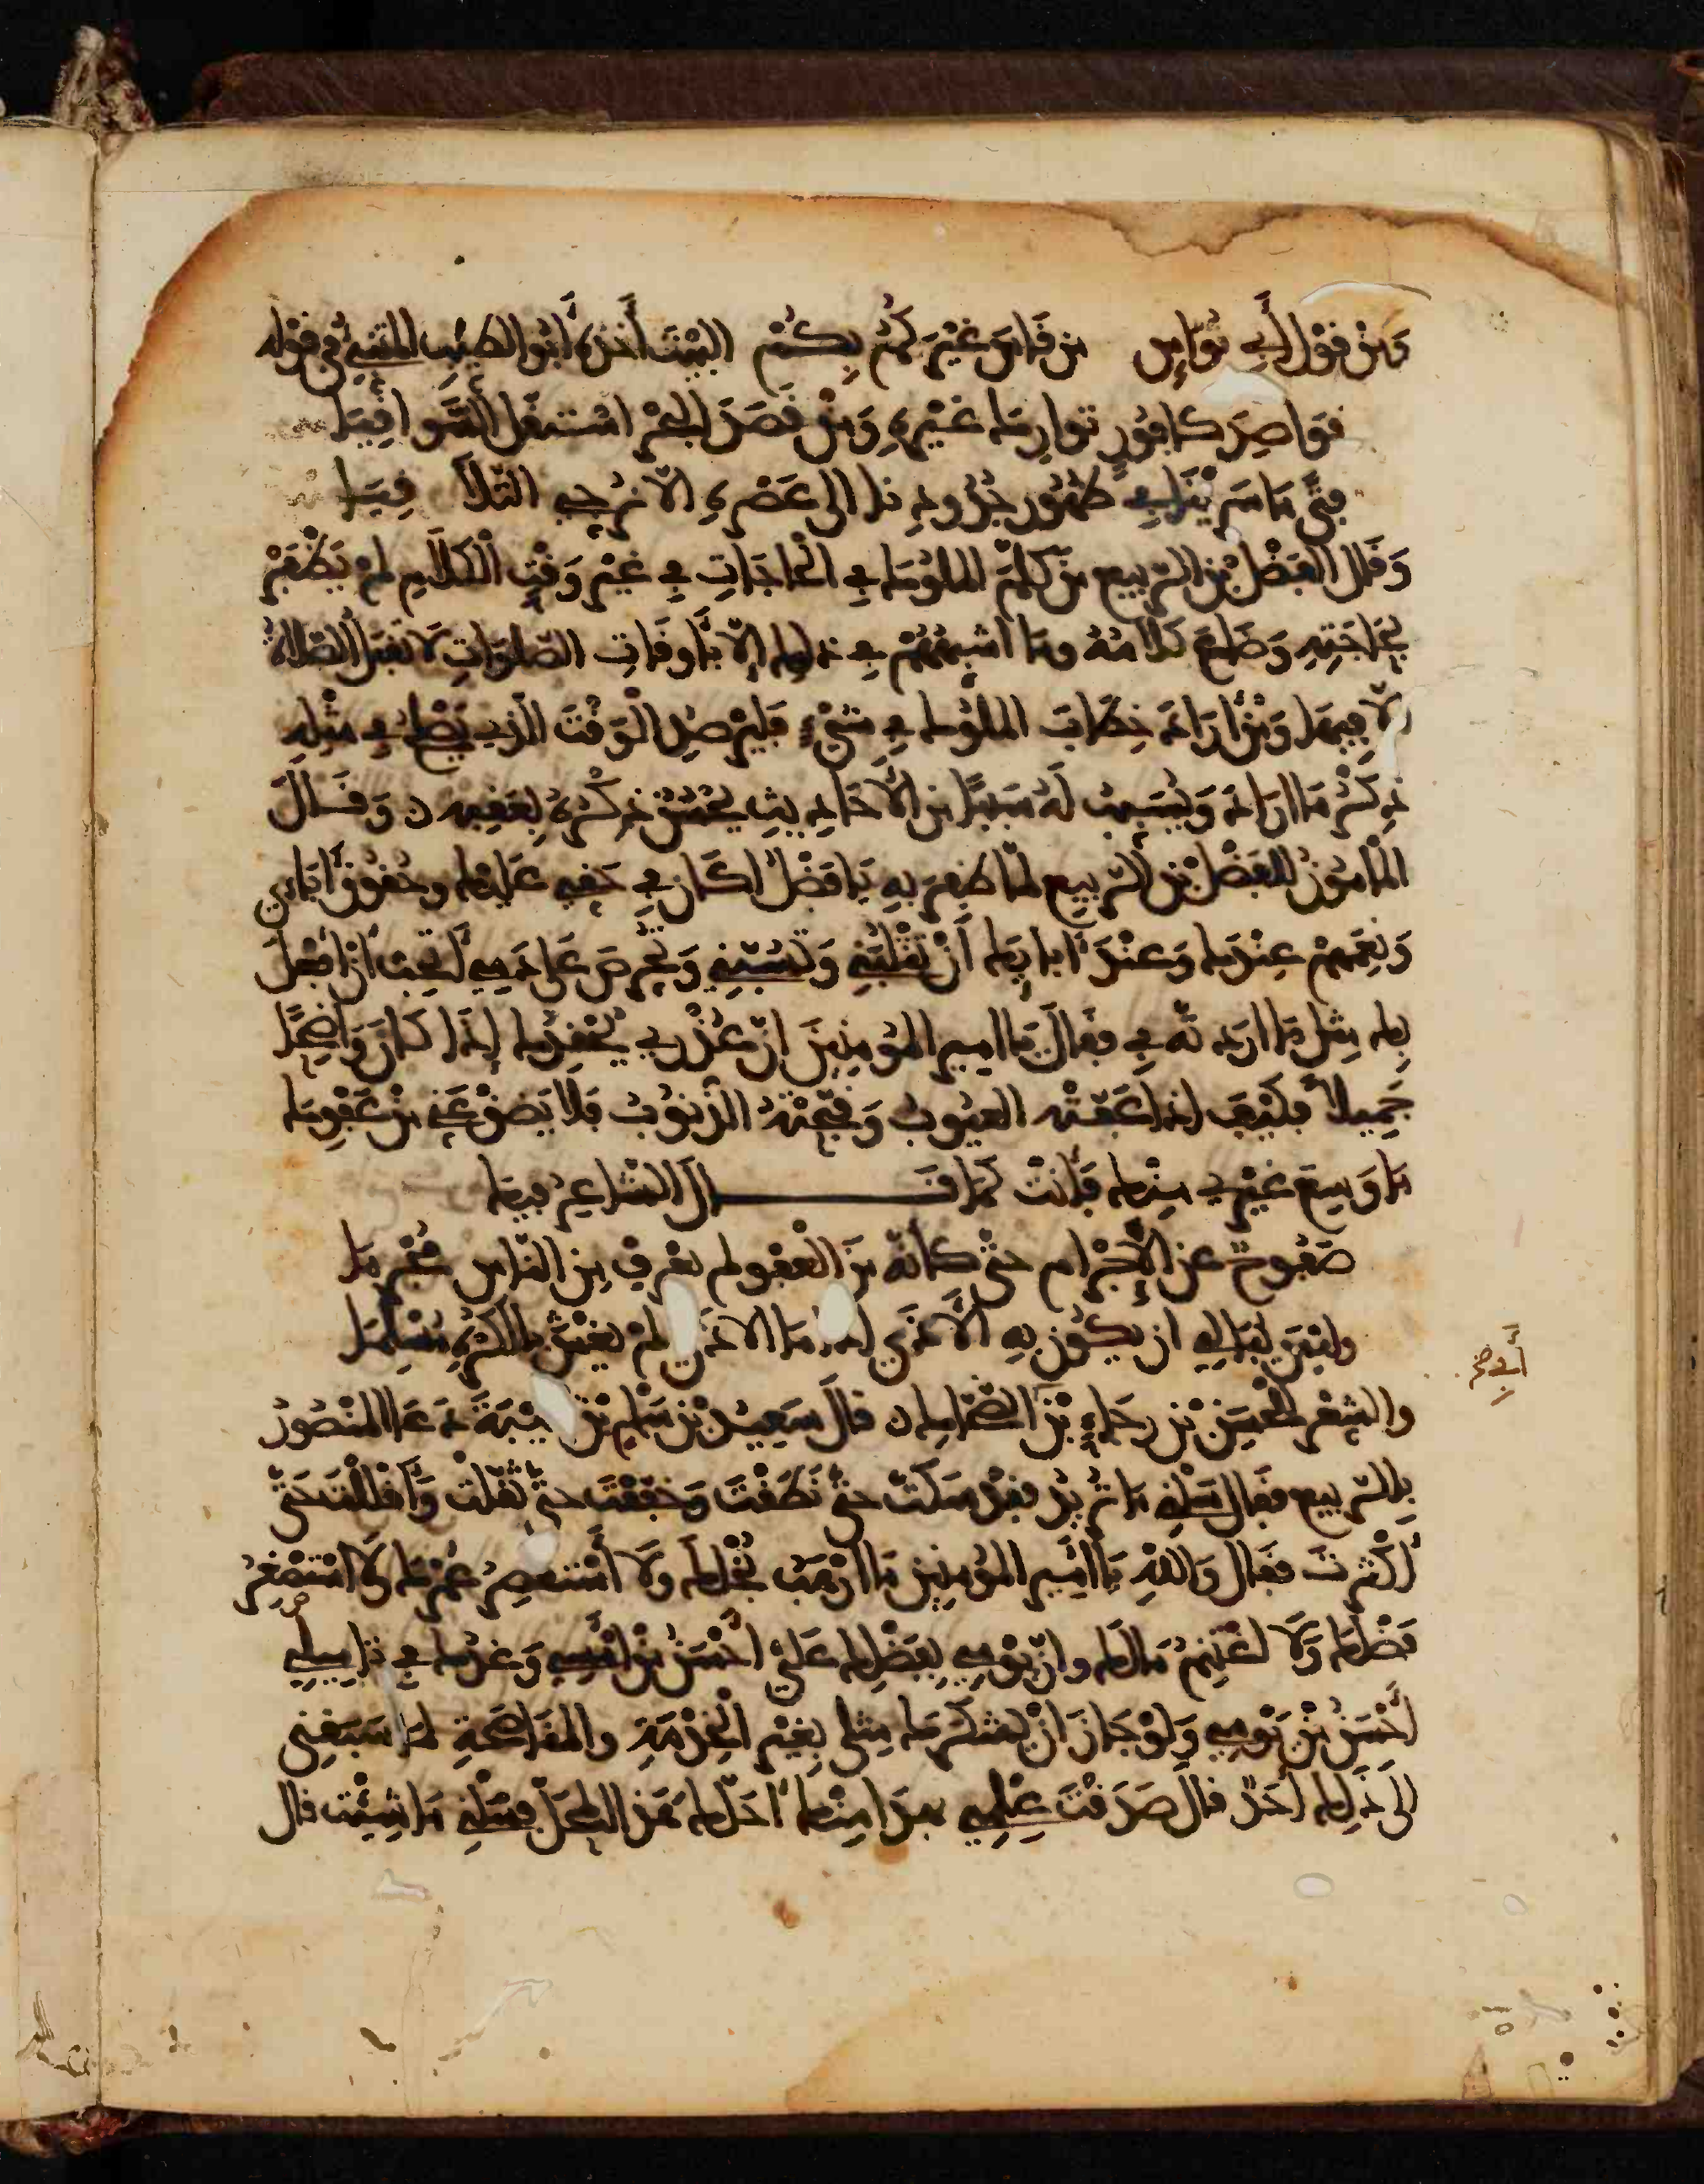 وَمِنْ قَوْلِ أَبِي نُوَاسٍ مَن قَاسَ غَيْرَكُمُ بِكُمْ البَيْتَ أَخَذَهُ أَبُو الطَيِّبِ المتنبي في قَوْلِه
قوَاصِدَ كافُورٍ توارِكَ غيْرِهِ وَمَنْ قَصَدَ البحْرَ اسْتقَلَّ السَّوَاقِيَا
فتًى مَا سَرَيْنَا فِي ظهُورِ جُدُودِنا الى عَصْرِهِ الا نُرَجِّي التّلاَقِيَا
وَقال الفَضْلُ بْن الرّبيع مَن كلّمَ الملُوكَ في الحاجَاتِ في غيْرِ وَقْتِ الْكَلاَمِ لم يَظْفَرْ
بحَاجَتِهِ وَضَاعَ كَلاَمُهُ ومَا اشبهُهُمْ في ذلك إلاّ بأَوقَاتِ الصّلَوَاتِ لاَ تقبَلُ الصّلاةُ
الاّ فِيهَا وَمَنْ أرَادَ خِطَابَ الملُوكِ في شيْءٍ فليَرْصُدِ الْوَقْتَ الّذي يَصْلحُ في مثْلِهِ
ذِكْرُ مَا ارَادَ وَيُسَبِّبُ لَهُ سَبَبًا مِن الأحَادِيثِ يحْسُنُ ذِكْرُهُ بِعَقِبِهِ ن وَقَالَ
المَأمُونُ للفَضْل بْن الرّبيع لمّا ظفِرَ بهِ يَا فَضْلُ اكَانَ في حَقّي عَليْكَ وحُقُوقِ آبَائي
وَنِعَمِهِمْ عِنْدَكَ وَعنْدَ آبايِكَ أَنْ تَثْلُبَنِي وَتَسُبَّنِي وَتحَرّضَ عَلى دَمِي أَتحِبّ أنْ أَفْعَلَ
بِكَ مِثلَ مَا ارَدتّه في فقَالَ يَا امير المؤمِنِينَ انّ عُذْرِي يُحْقِدُكَ إذَا كانَ وَاضِحًا
جَمِيلاً فكَيْفَ اذا عَفَتْه العيُوبُ وَقَبّحَتْهُ الذّنوُبُ فلا يَضِقْ عَنّي مِنْ عَفْوِكَ
مَا وَسِعَ غيْرِي مِنْكَ فأَنْتَ كمَا قَـــــالَ الشّاعِرُ فيكَ
صَفُوحٌ عَن الأَجْرَامِ حتّى كانّهُ مِنَ الْعَفْوِ لم يَعْرِفْ مِنَ النّاسِ مُجْرِمَا
وليْسَ يُبَالِي ان يكُونَ بهِ الأَذَى إذا مَا الاذَى لمْ يَغْشَ بالكُرْهِ مُسْلِمَا
أَبِي صح
والشِعْرُ للحُسَيْنِ بْن رجَاءِ بْن الضَّحاكِ ن قالَ سَعِيدُ بْن سَلْمِ بْن قتيْبَةَ دَعَا المنْصُورُ
بِالرّبيع فقَال سَلْنِي مَا تُرِيدُ فقَدْ سَكَتَّ حَتّى نَطَقْتَ وَخفّفْتَ حتّى ثقّلْتَ وَأقلَلْتَ حَتّى
أكثَرْتَ فقَال وَاللهِ يَا أميرَ المؤمِنِين مَا ارْهَبُ بُخْلَكَ وَلاَ أَسْتَقصِرُ عُمْرَكَ وَلا اسْتصْغِرُ
فضْلكَ وَلاَ اغْتَنِمُ مَالَكَ وانّ يَوْمِي بِفَضْلِكَ عَلَيّ أحْسَنُ مِنْ أَمْسِي وَغدُكَ في تامِيلِي
أَحْسَنُ مِنْ يَوْمِي وَلوْ جَازَ انْ يَشْكُرَكَ مِثلى بِغيْرِ الخِدْمَةِ والمُنَاصَحةِ لمَا سَبَقنِي
الى ذَلِكَ أحَدٌ قالَ صَدَقْتَ عِلْمِي بهذا منْكَ أحَلّكَ هَذَا المحَلَّ فسَلْنِي مَا شِئْتَ قال